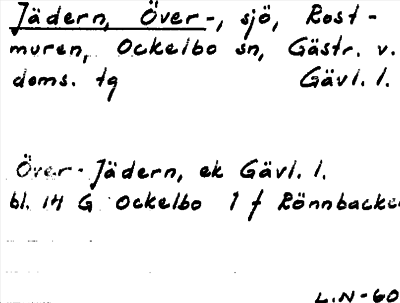 Jädern, Över-, sjö, Rost-
muren, Ockelbo sn, Gästr. v.
doms. tg Gävl. l.
Över-Jädern, ek Gävl. l.
bl. 14 G Ockelbo 1 f Rönnbacken
L.N-60